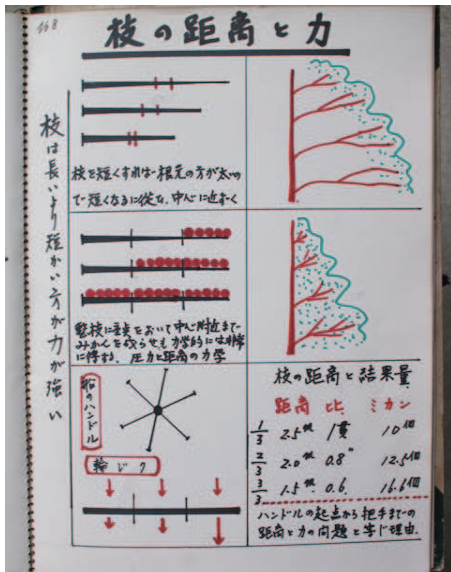 168
枝の距離と力
枝は長いより短かい方が力が強い
枝を短くすれば根元の方が太い
ので短くなるに従い、中心に近ずく
みかんを成らせる力学的には非常
に得する、圧力と距離の力学
船のハンドル
輪ジク
枝の距離と結果量
距離 比 ミカン
1/3 2.5 1貫 10個
2/3 2.0 0.8〃 12.5個
3/3 1.5 0.6. 16.6個
ハンドルの起点から把手までの
距離と力の問題と等じ理由.